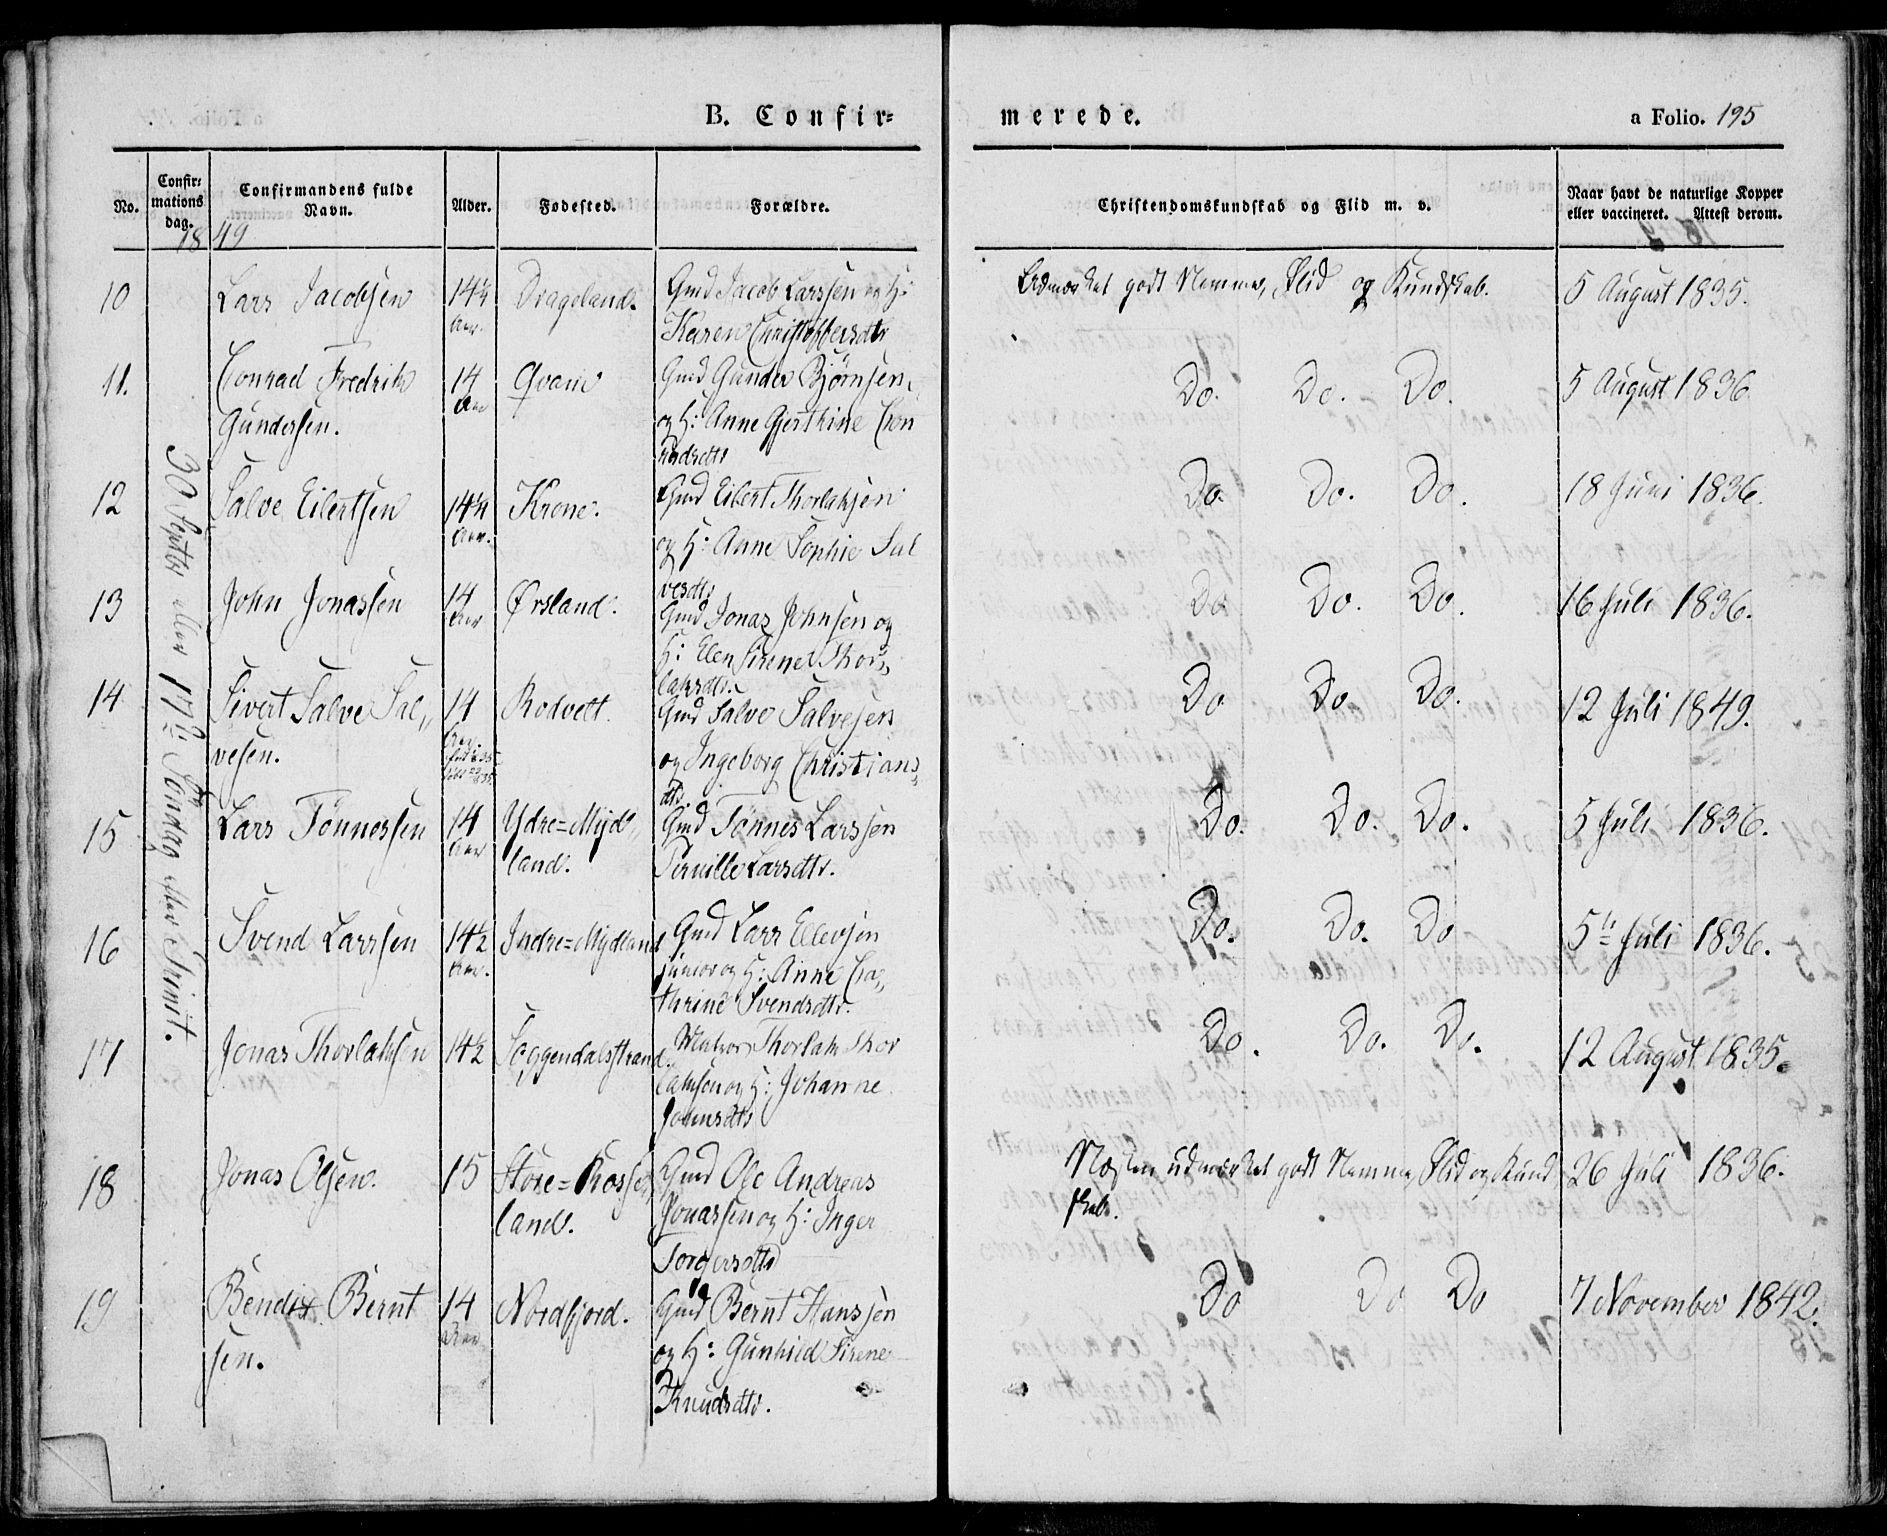 B. Confir=
merede.
a Folio. 195
No.
Confir=
mations
dag.
Confirmandens fulde
Navn.
Alder.
Fødested.
Forældre.
Christendomskundskab og Flid m. v.
Naar havt de naturlige Kopper
eller vaccineret. Attest derom.
1849
30 Septbr eller 17de Søndag efter Trinit.
10 Lars Jacobsen
Aar.
Drageland.
Gmd Jacob Larssen og H:
Karen Christoffersdtr
Udmærket godt Nemme, Flid og Kundskab.
5 August 1835.
11. Conrad Fredrik
Gundersen.
14
Aar
Qvam
Gmd Gunder Bjørnsen,
og H: Anne Gjerthine Con
radsdtr
Do. Do. Do.
5 August 1836.
12 Salve Eilertsen
Aar.
Krone.
Gmd Eilert Thorlaksen
og H: Anne Sophie Sal
vesdtr
Do. Do. Do.
18 Juni 1836.
13 John Jonassen
14
Aar
Ørsland.
Gmd Jonas Johnsen og
H: Elen Sirene Thor„
laksdtr.
Do. Do. Do.
16 Juli 1836.
14 Sivert Salve Sal„
vesen.
14
Rodvelt.
Gmd Salve Salvesen
og Ingeborg Christians„
dtr.
Do Do Do.
12 Juli 1849.
15 Lars Tønnessen
14
Aar
Ydre=Mydl„
land.
Gmd Tønnes Larssen
Pernille Larsdtr.
Do. Do. Do.
5 Juli 1836.
16 Svend Larssen
14½
Aar.
Indre=Mydland
Gmd Lars Ellevsen
junior og H: Anne Ca„
thrine Svendsdtr.
Do. Do. Do
5te Juli 1836.
17 Jonas Thorlaksen
14½
Soggendalsstrand.
Matros Thorlak Thor
laksen og H: Johanne
Johnsdtr
Do. Do. Do.
12 August 1835.
18 Jonas Olsen.
15
Store=Rosse
land.
Gmd Ole Andreas
Jonassen og H: Inger
Torgersdtr
Næsten udmærket godt Nemme, Flid og Kund
skab.
26 Juli 1836.
19 Bendix Bernt
sen.
14
Aar
Nordfjord.
Gmd Bernt Hanssen
og H: Gunhild Sirene
Knudsdtr.
Do Do Do
7 November 1842.